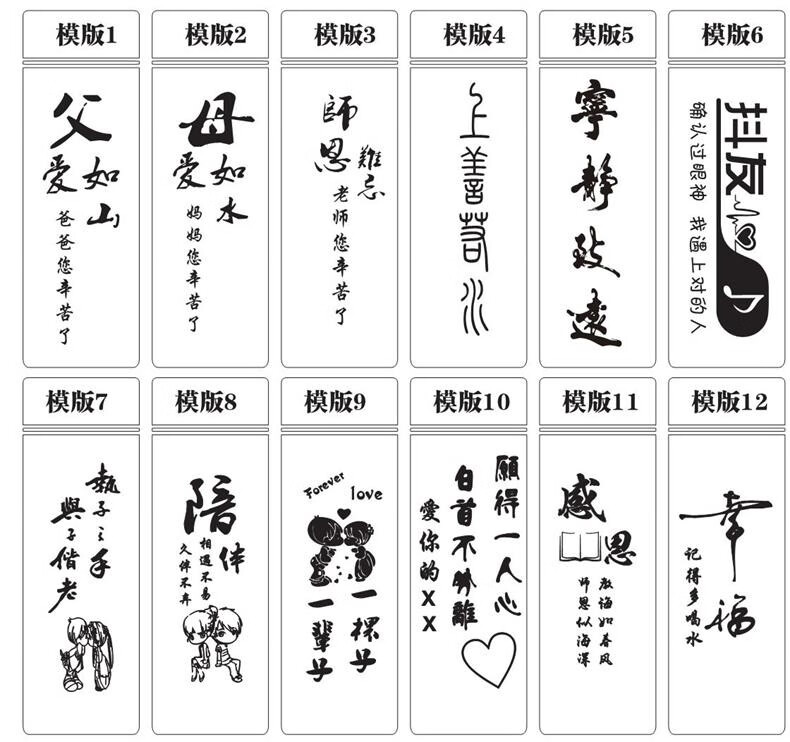 模版1
父爱如山
爸爸您辛苦了
模版2
母爱如水
妈妈您辛苦了
模版3
師恩難忘
老师您辛苦了
模版4
上善若水
模版5
寧靜致遠
模版6
抖友
确认过眼神 我遇上对的人
模版7
執子之手
與子偕老
模版8
陪伴
相遇不易
久伴不弃
模版9
Forever
love
一棵子
一輩子
模版10
願得一人心
白首不分離
愛你的XX
模版11
感恩
教诲如春风
师恩似海深
模版12
幸福
记得多喝水